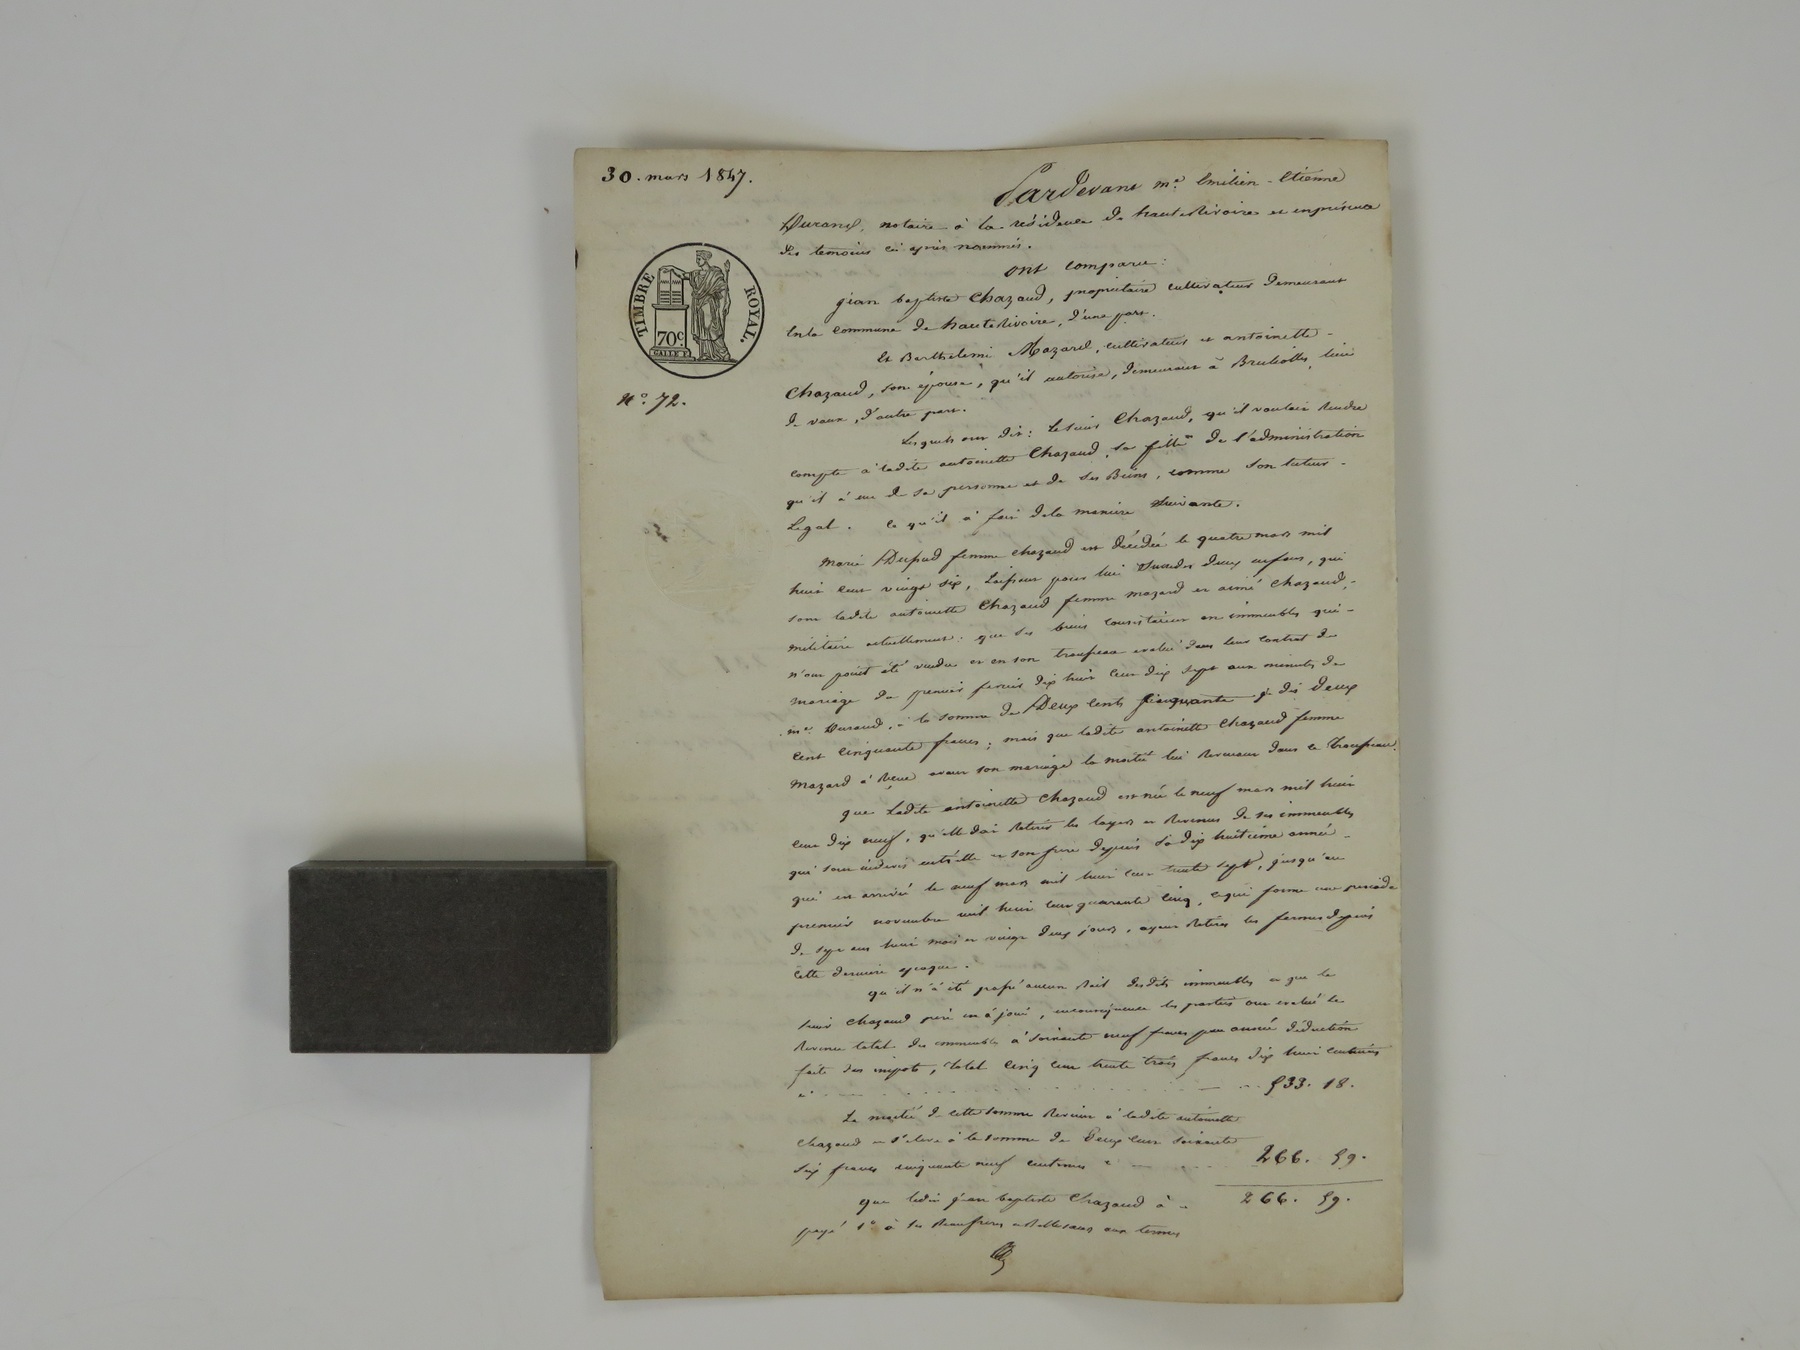 30. mars 1847.
TIMBRE ROYAL.
70c.
N.o 72.
Pardevant me. Emilien-Etienne
Durand, notaire à la résidence de hauteRivoire et en présence
des temoins ci après nommés.
ont comparu:
jean baptiste Chazaud, propriétaire cultivateur demeurant
en la commune de hauteRivoire, d'une part.
Et Barthelemi Mazard, cultivateur et antoinette
Chazaud, son épouse, qu'il autorise, demeurant à Brulioles, lieu
de vaux, d'autre part.
Lesquels ont dit: le sieur Chazaud, qu'il voulait Rendre
compte à ladite antoinette Chazaud, sa fille de l'administration
qu'il à eue de sa personne et de ses Biens, comme son tuteur
Legal. ce qu'il à fait de la maniere Suivante.
Marie Dupud femme chazaud est décédée le quatre mars mil
huit cent vingt six, Laissant pour lui Succeder deux enfans, qui
sont ladite antoinette Chazaud femme mazard et aimé Chazaud,
militaire actuellement: que ses biens consistaient en immeubles qui
n'ont point été vendus et en son trousseau evalué dans leur contrat de
mariage du premier fevrier dix huit cent dix sept aux minutes de
me. Durand, à la somme de Deux cents cinquante je dis deux
cent cinquante francs; mais que ladite antoinette Chazaud femme
Mazard à Reçu avant son mariage la moitié lui Revenant dans ce trousseau.
que Ladite antoinette Chazaud est née le neuf mars mil huit
cent dix neuf, qu'elle doit Retirer les loyers et Revenus de ses immeubles
qui sont indivis entr'elle et son frere depuis sa dix huitième année
qui est arrivée le neuf mars mil huit cent trente sept, jusqu'au
premier novembre mil huit cent quarante cinq, ce qui forme une periode
de sept ans huit mois et vingt deux jours, ayant Retiré les fermes depuis
cette derniere epoque.
qu'il n'a été passé aucun Bail desdits immeubles et que le
sieur Chazaud pere en à joui, en conséquence les parties ont evalué le
Revenu total des immeubles à soixante neuf francs par année déduction
faite des impots, total cinq cent trente trois francs dix huit centimes
ci 533. 18.
La moitié de cette somme Revient à ladite antoinette
Chazaud et s'eleve à la somme de Deux cent soixante
six francs cinquante neuf centimes ci 266. 59.
266. 59.
que ledit jean baptiste Chazaud à
payé 1o à ses Beaufreres et Bellesœurs aux termes